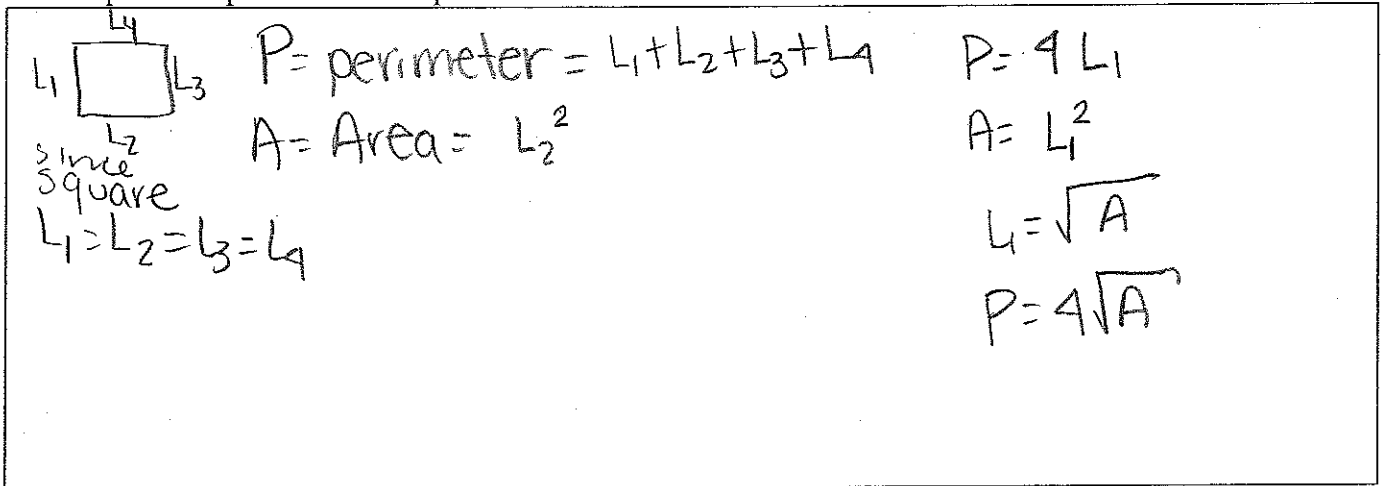 L4
L1
L3
L2
since
square
L1 = L2 = L3 = L4
P = perimeter = L1 + L2 + L3 + L4
A = Area = L2²
P = 4 L1
A = L1²
L1 = √A
P = 4√A